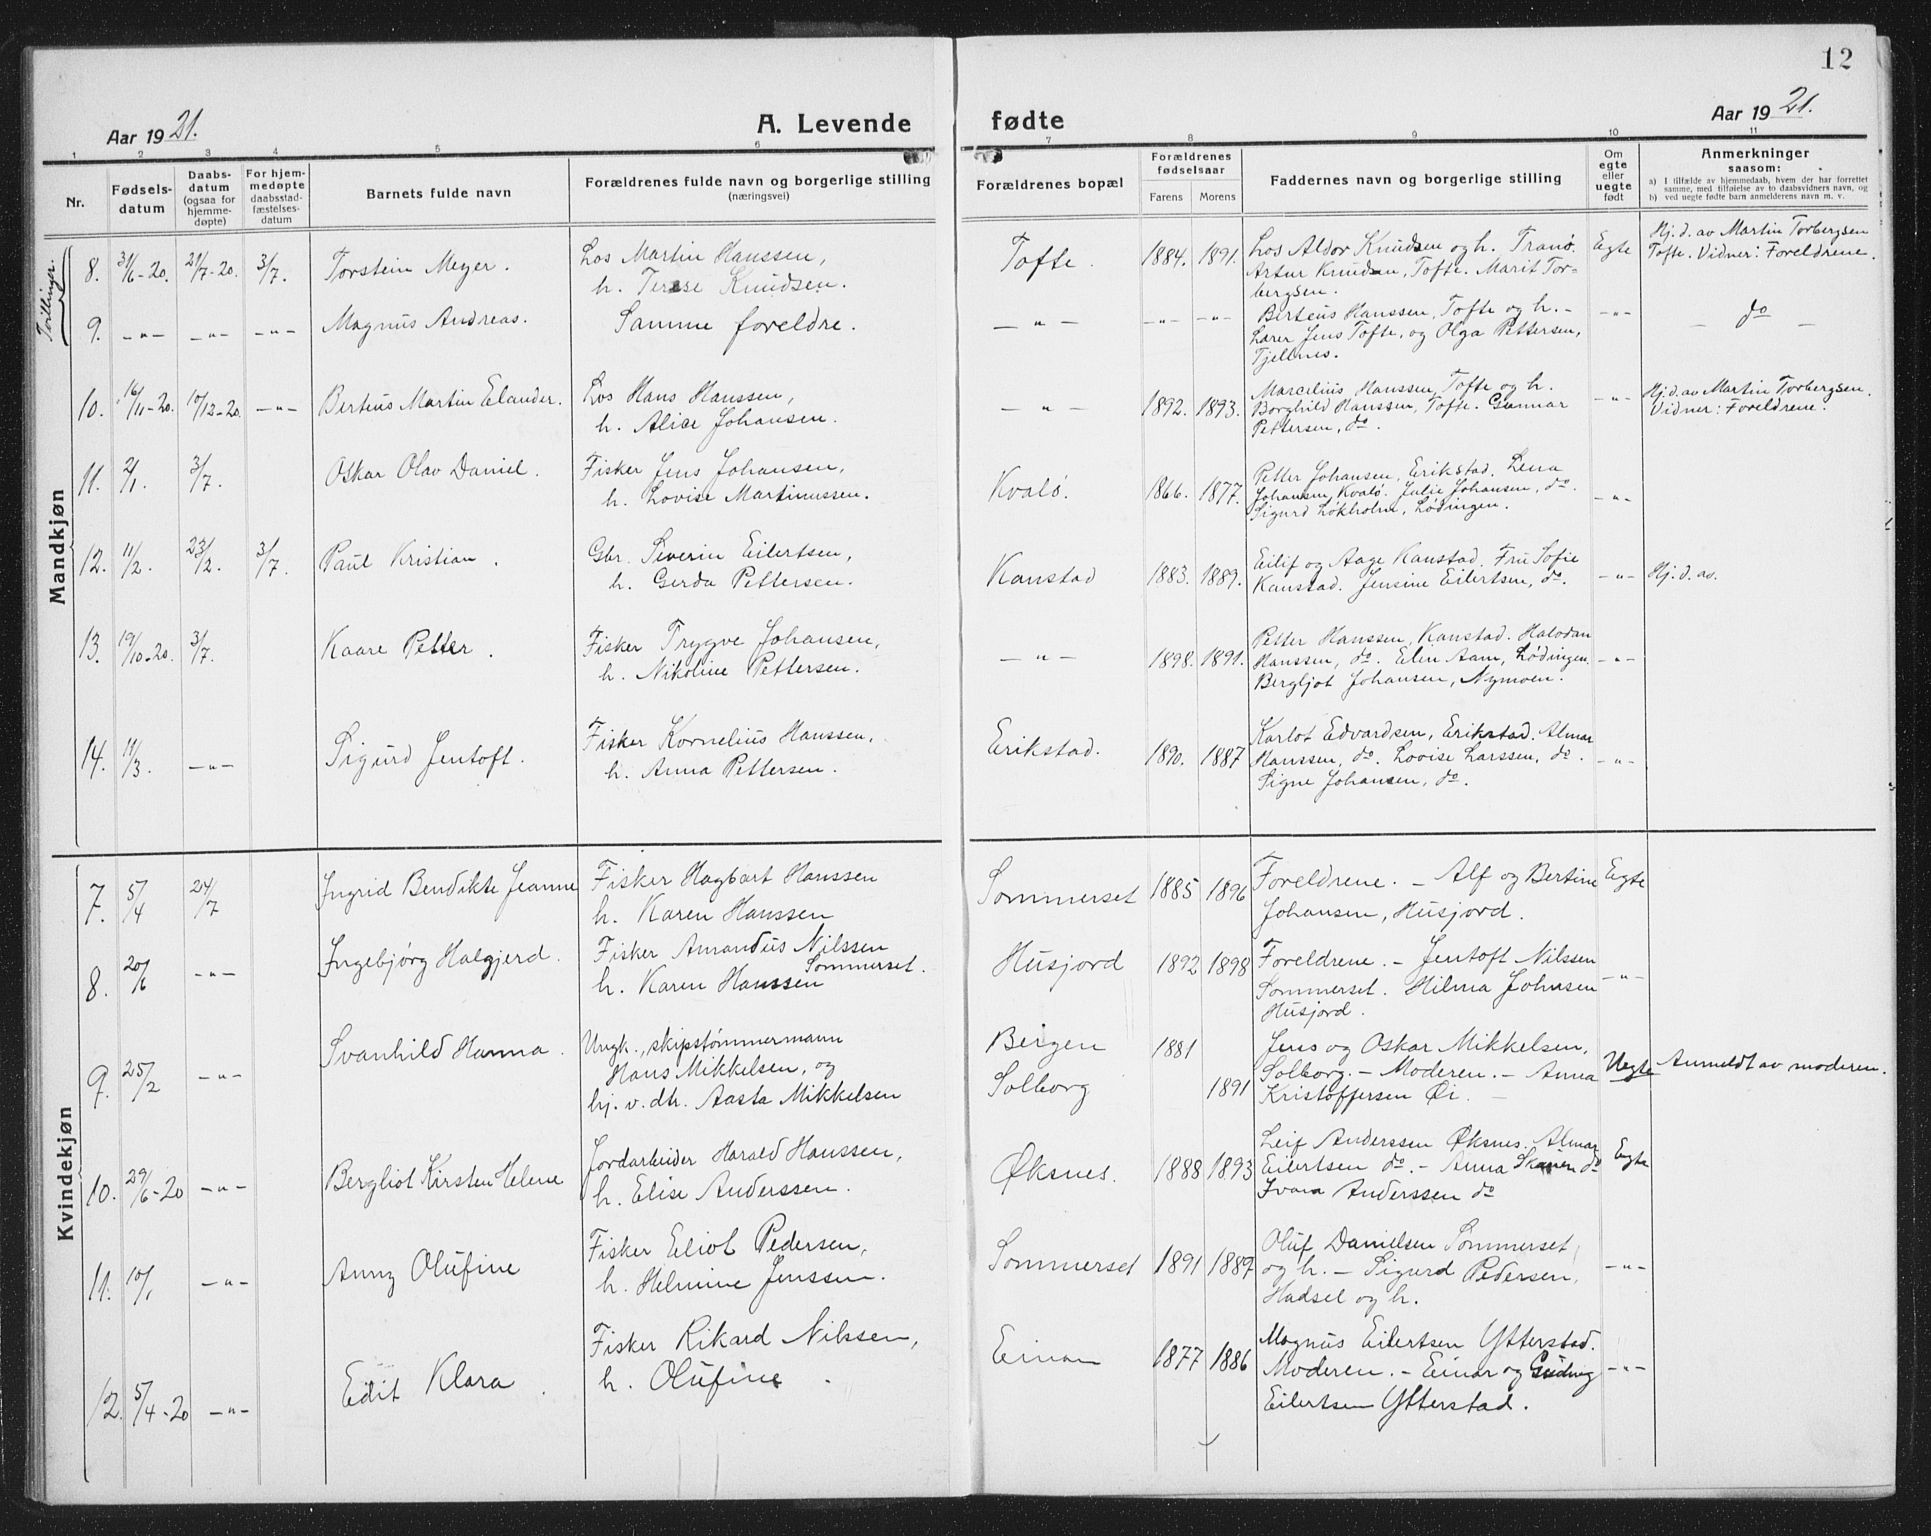 12
Aar 1921. A. Levende fødte Aar 1921.
1 2 3 4 5 6 7 8 9 10 11
Nr.
Fødsels-
datum
Daabs-
datum
(ogsaa for
hjemme-
døpte)
For hjem-
medøpte
daabsstad-
fæstelses-
datum
Barnets fulde navn
Forældrenes fulde navn og borgerlige stilling
(næringsvei)
Forældrenes bopæl
Forældrenes
fødselsaar
Farens Morens
Faddernes navn og borgerlige stilling
Om
egte
eller
uegte
født
Anmerkninger
saasom:
a) I tilfælde av hjemmedaab, hvem der har forrettet
samme, med tilføielse av to daabsvidners navn, og
b) ved uegte fødte barn anmelderens navn m. v.
Mandkjøn
Tvillinger.
8. 21/7-20. 3/7. Torstein Meyer.
Los Martin Hanssen,
h. Terese Knudsen.
Tofte. 1884. 1891.
Los Aldor Knudsen og h. Tranö.
Artur Knudsen, Tofte. Marit Tor-
bergsen.
Egte
Hj. d. av Martin Torbergsen
Tofte. Vidner: Foreldrene.
9. -"- -"- -"- Magnus Andreas. Samme foreldre.
-"- -"- -"-
Birteus Hanssen, Tofte og h. -
Lærer Jens Tofte, og Olga Pettersen,
Tjellnes.
-"- - do -
10. 16/11-20. 10/12-20. -"- Bertius Martin Elander.
Los Hans Hanssen,
h. Alice Johansen.
-"- 1892. 1893.
Marcilius Hanssen, Tofte og h.
Borghild Hanssen, Tofte. Gunnar
Pettersen, do.
-"-
Hj. d. av Martin Torbergsen.
Vidner: Foreldrene.
11. 2/1. 3/7. Oskar Olav Daniel.
Fisker Jens Johansen,
h. Lovise Martinussen.
Kvalö. 1866. 1877.
Petter Johansen, Erikstad. Lena
Johansen, Kvalö. Julie Johansen, do.
Sigurd Løkholm, Lödingen.
-"-
12. 11/2. 23/2. 3/7. Paul Kristian.
Gbr. Severin Eilertsen,
h. Gerda Pettersen.
Kanstad 1883. 1889.
Eilif og Aage Kanstad. Fru Sofie
Kanstad. Jensine Eilertsen, do.
-"- Hj. d. av.
13. 19/10-20. 3/7. Kaare Petter.
Fisker Trygve Johansen,
h. Nikoline Pettersen.
-"- 1898. 1891.
Petter Hanssen, Kanstad. Halvdan
Hanssen, do. Elin Aam, Lödingen.
Bergljot Johansen, Nymoen.
-"-
14. 11/3. -"- Sigurd Jentoft.
Fisker Kornelius Hanssen,
h. Anna Pettersen.
Erikstad. 1890. 1887
Karlot Edvardsen, Erikstad. Almar
Hanssen, do. Lovise Larssen, do.
Signe Johansen, do.
-"-
Kvindekjøn
7. 5/4 24/7 Ingrid Bendikte Jeanne
Fisker Hagbart Hanssen
h. Karen Hanssen
Sommerset 1885 1896
Foreldrene. - Alf og Bertine
Johansen, Husjord.
Egte
8. 20/6 -"- Ingebjørg Halgjerd.
Fisker Amandus Nilssen
Sommerset.
h. Karen Hanssen
Husjord 1892 1898
Foreldrene. - Jentoft Nilssen
Sommerset. Hilma Johnsen
Husjord.
-"-
9. 25/2 -"- Svanhild Hanna.
Ungk., skipstømmermann
Hans Mikkelsen, og
pj. v. dtr. Aasta Mikkelsen
Bergen 1881
Solborg 1891
Jens og Oskar Mikkelsen,
Solborg. - Moderen. - Anna
Kristoffersen Øi.
Uegte Anmeldt av moderen.
10. 29/6-20 -"- Bergliot Kirsten Helene
Jordarbeider Harald Hanssen,
h. Elise Anderssen.
Øksnes. 1888 1893
Leif Anderssen Øksnes. Almar
Eilertsen do. - Anna Skaren do
Ivara Anderssen do
Egte
11. 10/1 -"- Anny Olufine
Fisker Eliot Pedersen,
h. Helmine Jenssen.
Sommerset 1891 1887
Oluf Danielsen Sommerset
og h. - Sigurd Pedersen,
Hadsel og h.
-"-
12. 5/4-20 -"- Edit Klara.
Fisker Rikard Nilssen,
h. Olufine.
Einan 1877 1886
Magnus Eilertsen Ytterstad.
Moderen. - Einar og
Eilertsen Ytterstad.
-"-